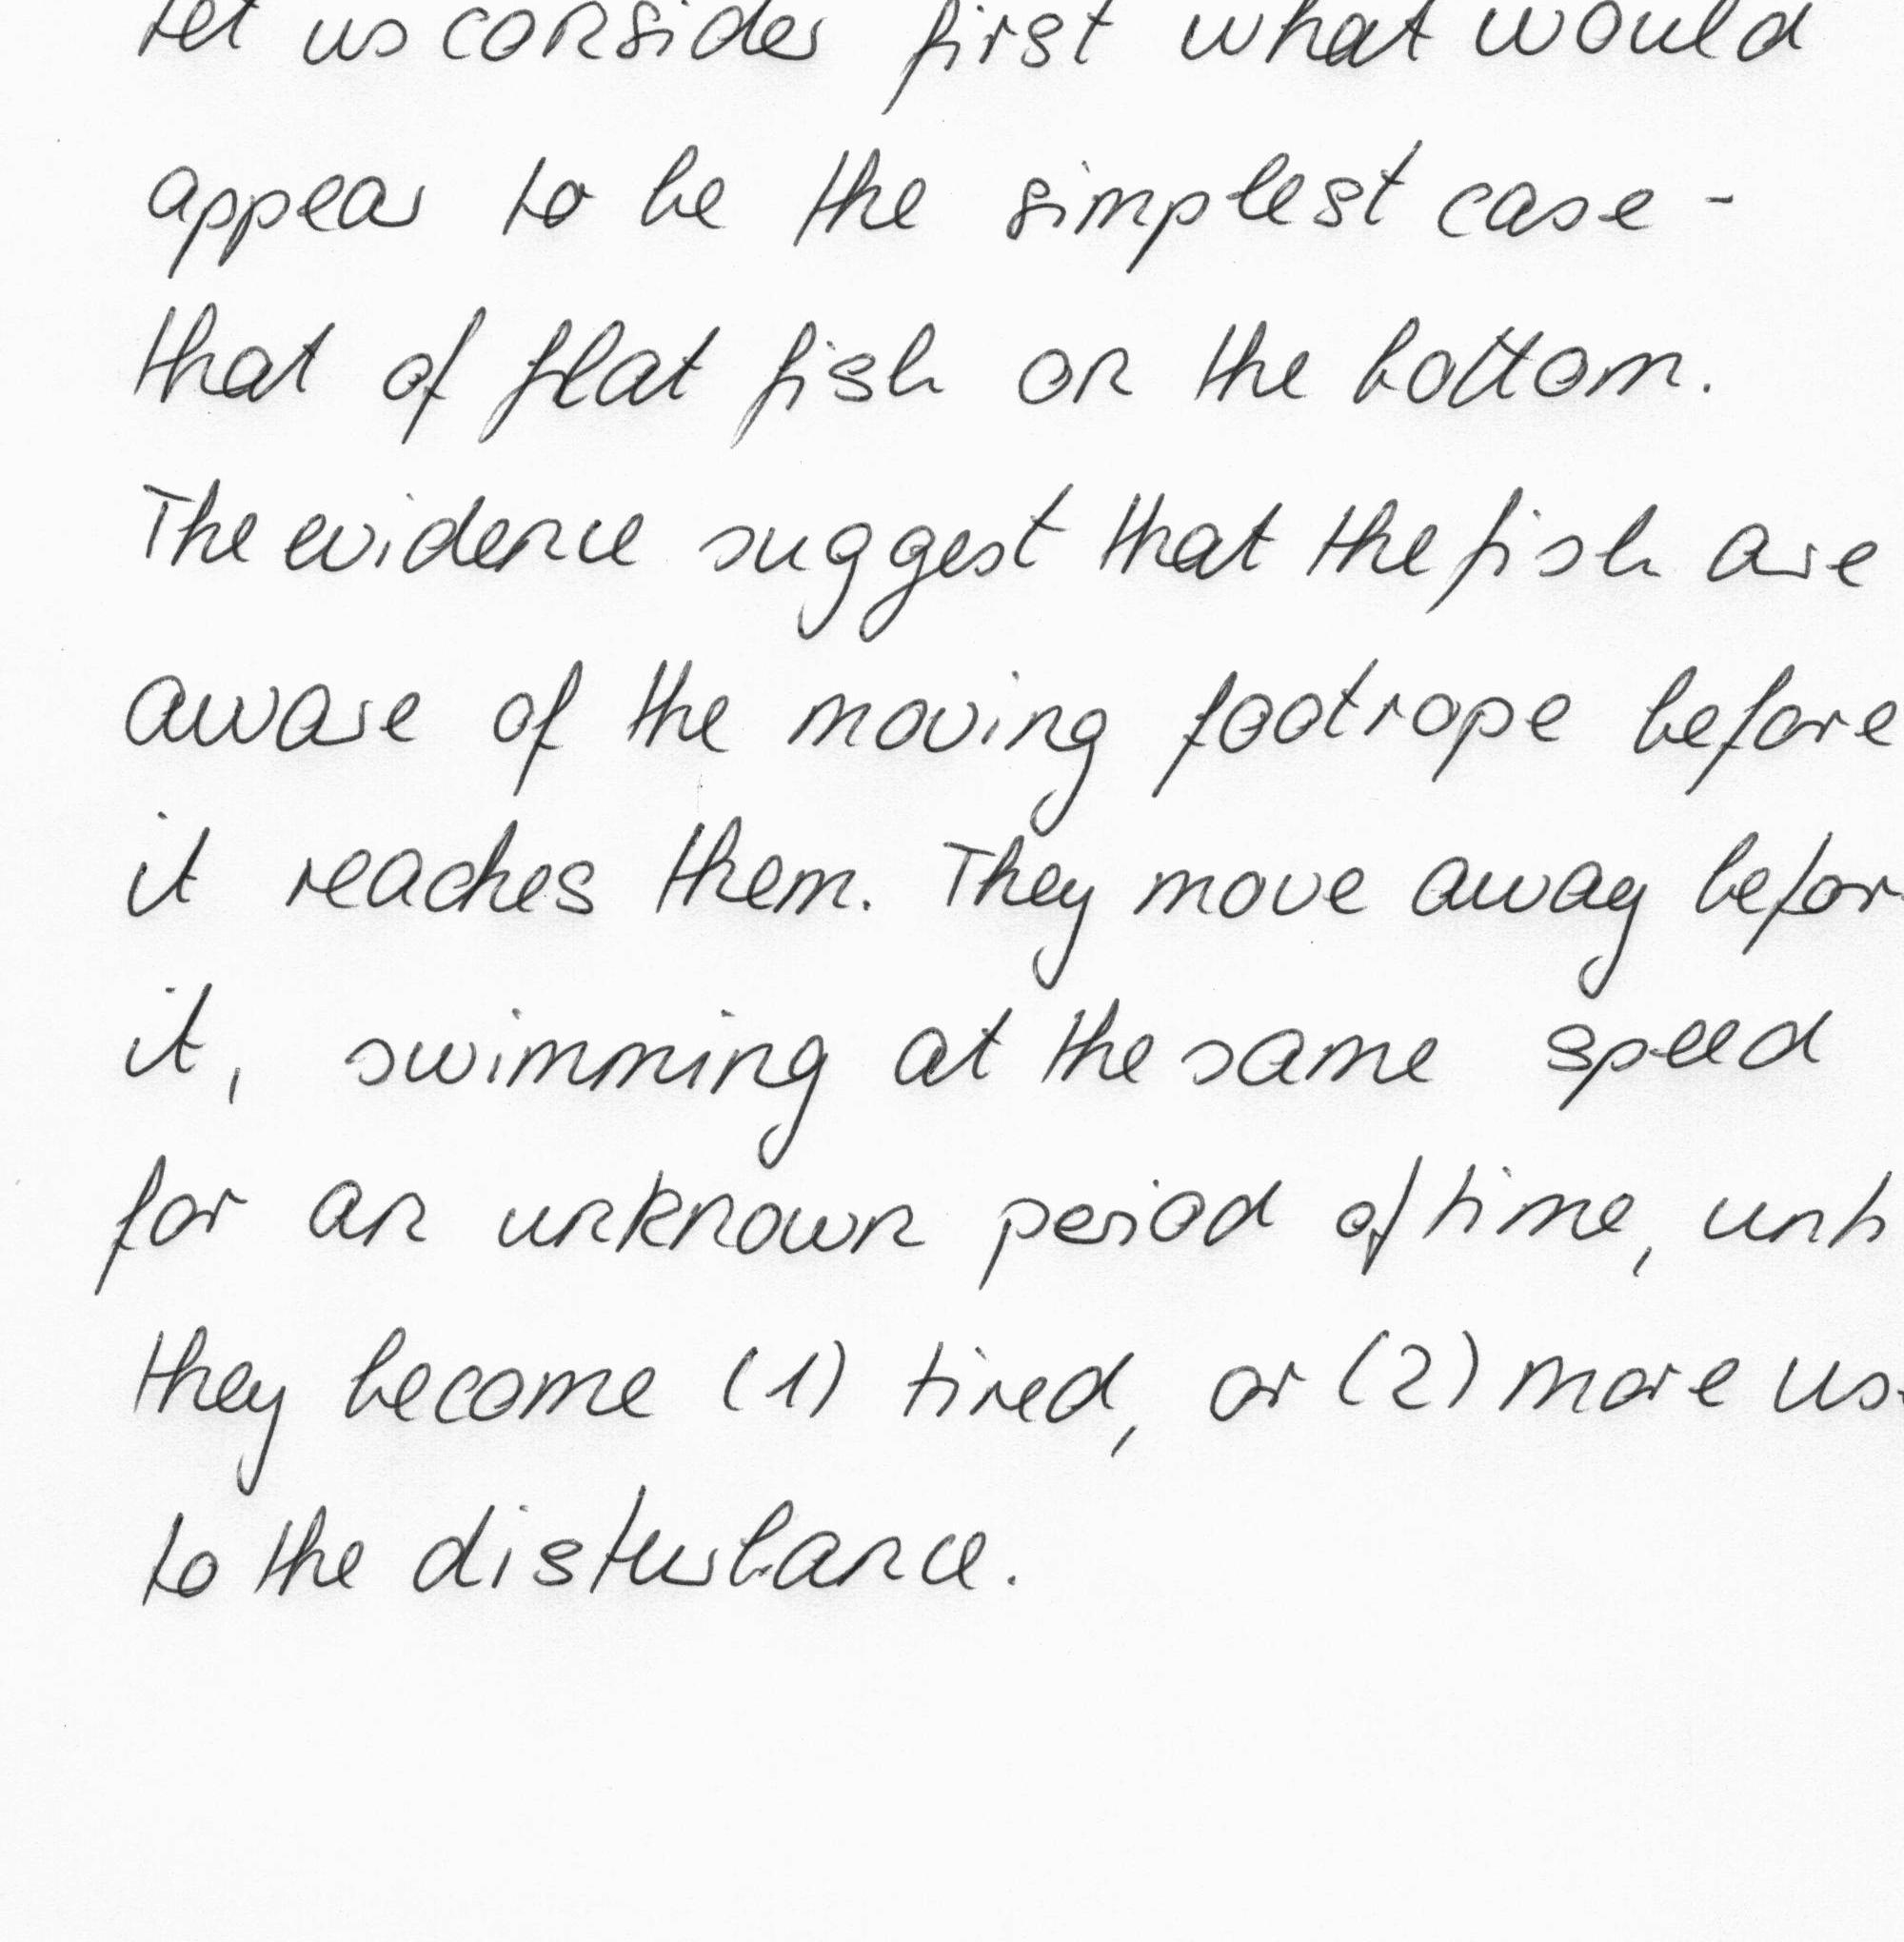 Let us consider first what would
appear to be the simplest case -
that of flat fish on the bottom.
The evidence suggest that the fish are
aware of the moving footrope before
it reaches them. They move away befor
it, swimming at the same speed
for an unknown period of time, unti
they become (1) tired, or (2) more us
to the disturbance.